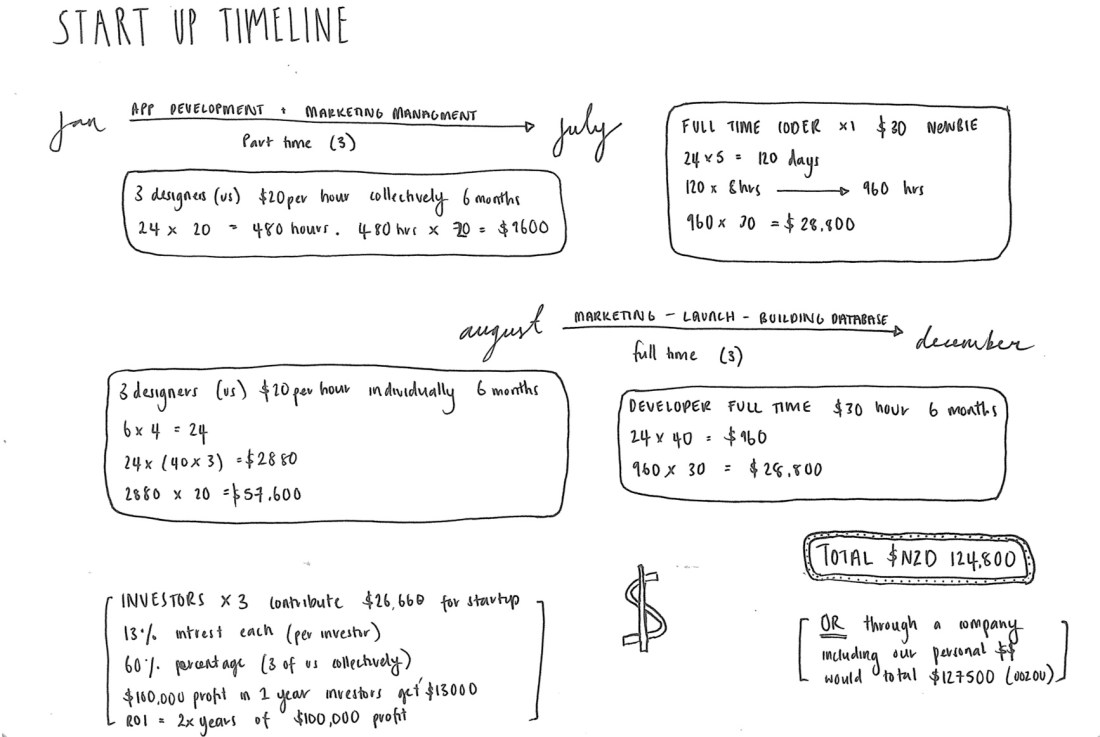 START UP TIMELINE
Jan
APP DEVELOPMENT + MARKETING MANAGMENT
Part time (3)
july
3 designers (us) $20 per hour collectively 6 months
24 x 20 = 480 hours. 480 hrs x 20 = $9600
FULL TIME CODER x1 $30 NEWBIE
24 x 5 = 120 days
120 x 8hrs → 960 hrs
960 x 30 = $28,800
august
MARKETING - LAUNCH - BUILDING DATABASE
full time (3)
december
3 designers (us) $20 per hour individually 6 months
6 x 4 = 24
24 x (40 x 3) = $2880
2880 x 20 = $57,600
DEVELOPER FULL TIME $30 hour 6 months
24 x 40 = $960
960 x 30 = $28,800
TOTAL $NZD 124,800
INVESTORS x 3 contribute $26,660 for startup
13% intrest each (per investor)
60% percentage (3 of us collectively)
$100,000 profit in 1 year investors get $13000
ROI = 2x years of $100,000 profit
$
OR through a company
including our personal $$
would total $127500 (OOZOU)